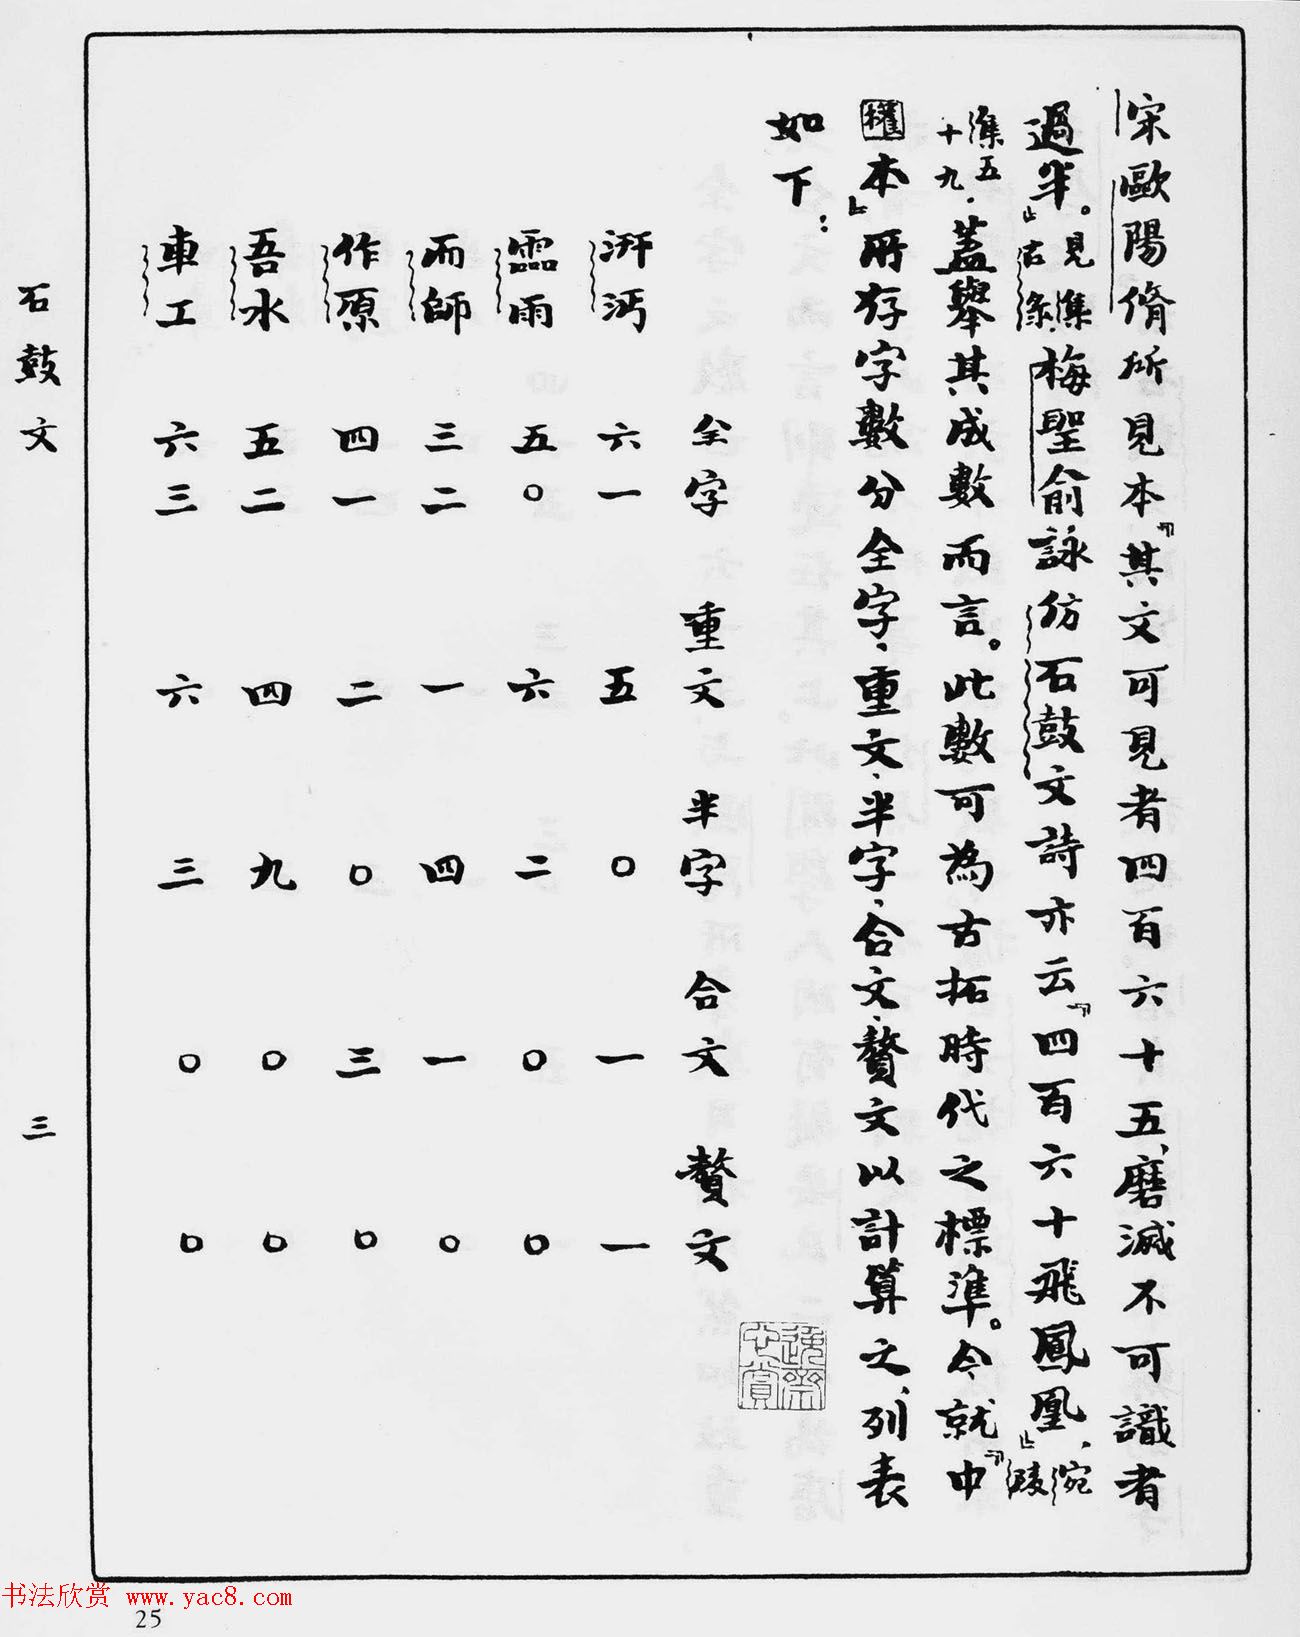 宋歐陽脩所見本『其文可見者四百六十五、磨滅不可識者
過半。』見集古錄。梅聖俞詠仿石鼓文詩亦云『四百六十飛鳳凰、』宛陵
集五十九.蓋舉其成數而言。此數可為古拓時代之標準。今就『中
權本』所存字數分全字、重文、半字、合文、贅文以計算之、列表
如下：
全字 重文 半字 合文 贅文
汧沔 六一 五 〇 一 一
霝雨 五〇 六 二 〇 〇
而師 三二 一 四 一 〇
作原 四一 二 〇 三 〇
吾水 五二 四 九 〇 〇
車工 六三 六 三 〇 〇
石鼓文 三
书法欣赏 www.yac8.com
25